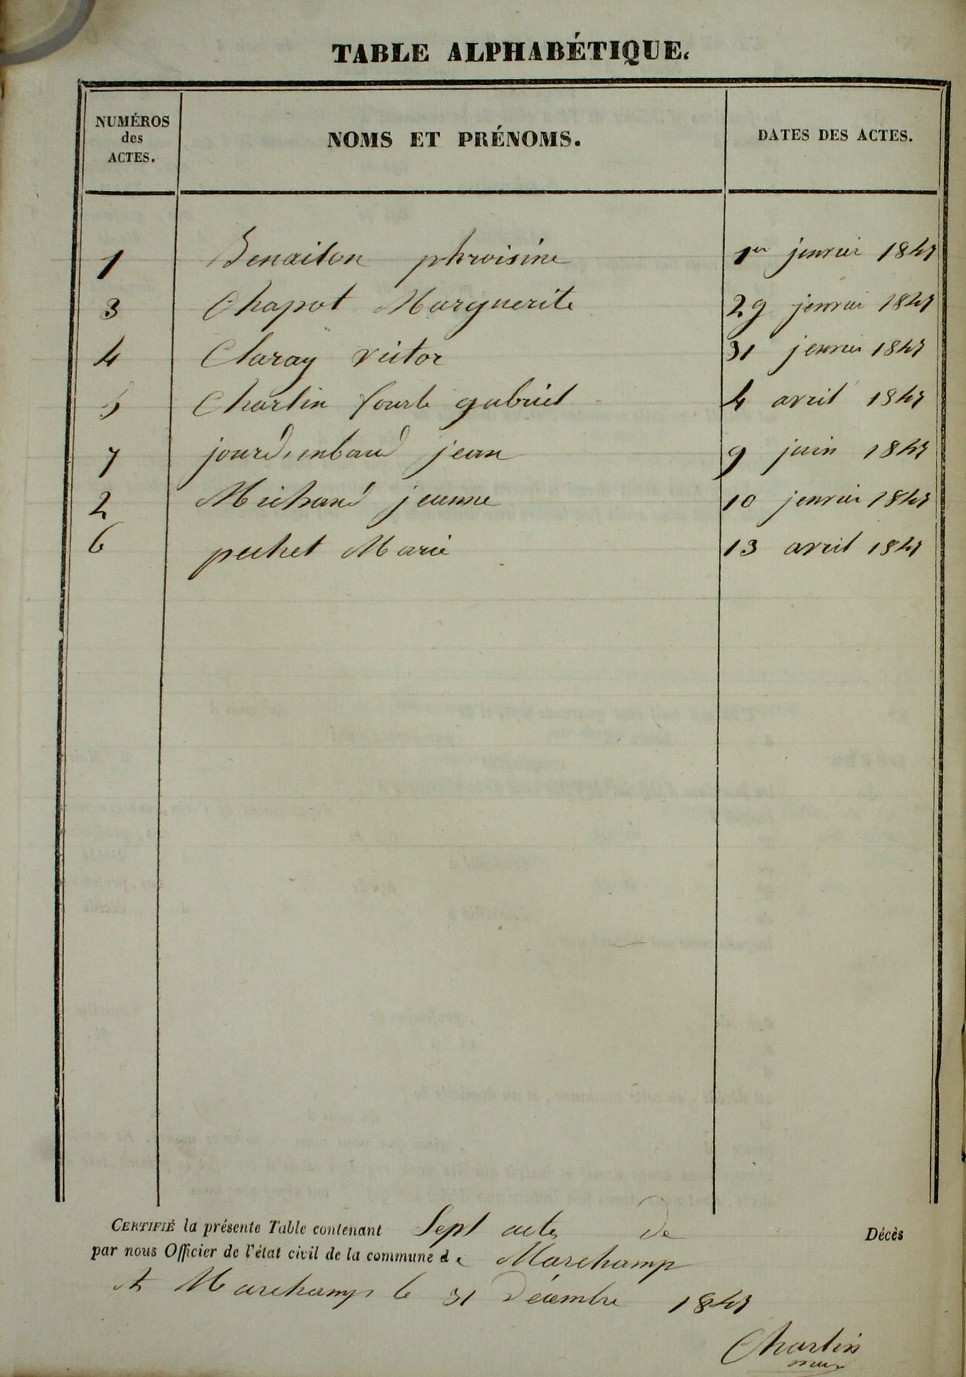 TABLE ALPHABÉTIQUE.
NUMÉROS des ACTES. NOMS ET PRÉNOMS. DATES DES ACTES.
1 Benaiton phroisine 1er jenvier 1847
3 Chapot Marguerite 29 jenvier 1847
4 Claray victor 31 jenvier 1847
5 Chartin gabriel 4 avril 1847
7 jean 9 juin 1847
2 Michaud jeanne 10 jenvier 1847
6 pechet Marie 13 avril 1847
CERTIFIÉ la présente Table contenant Sept actes de Décès
par nous Officier de l'état civil de la commune de Marchamp
A Marchamp le 31 Décembre 1847
Chartin